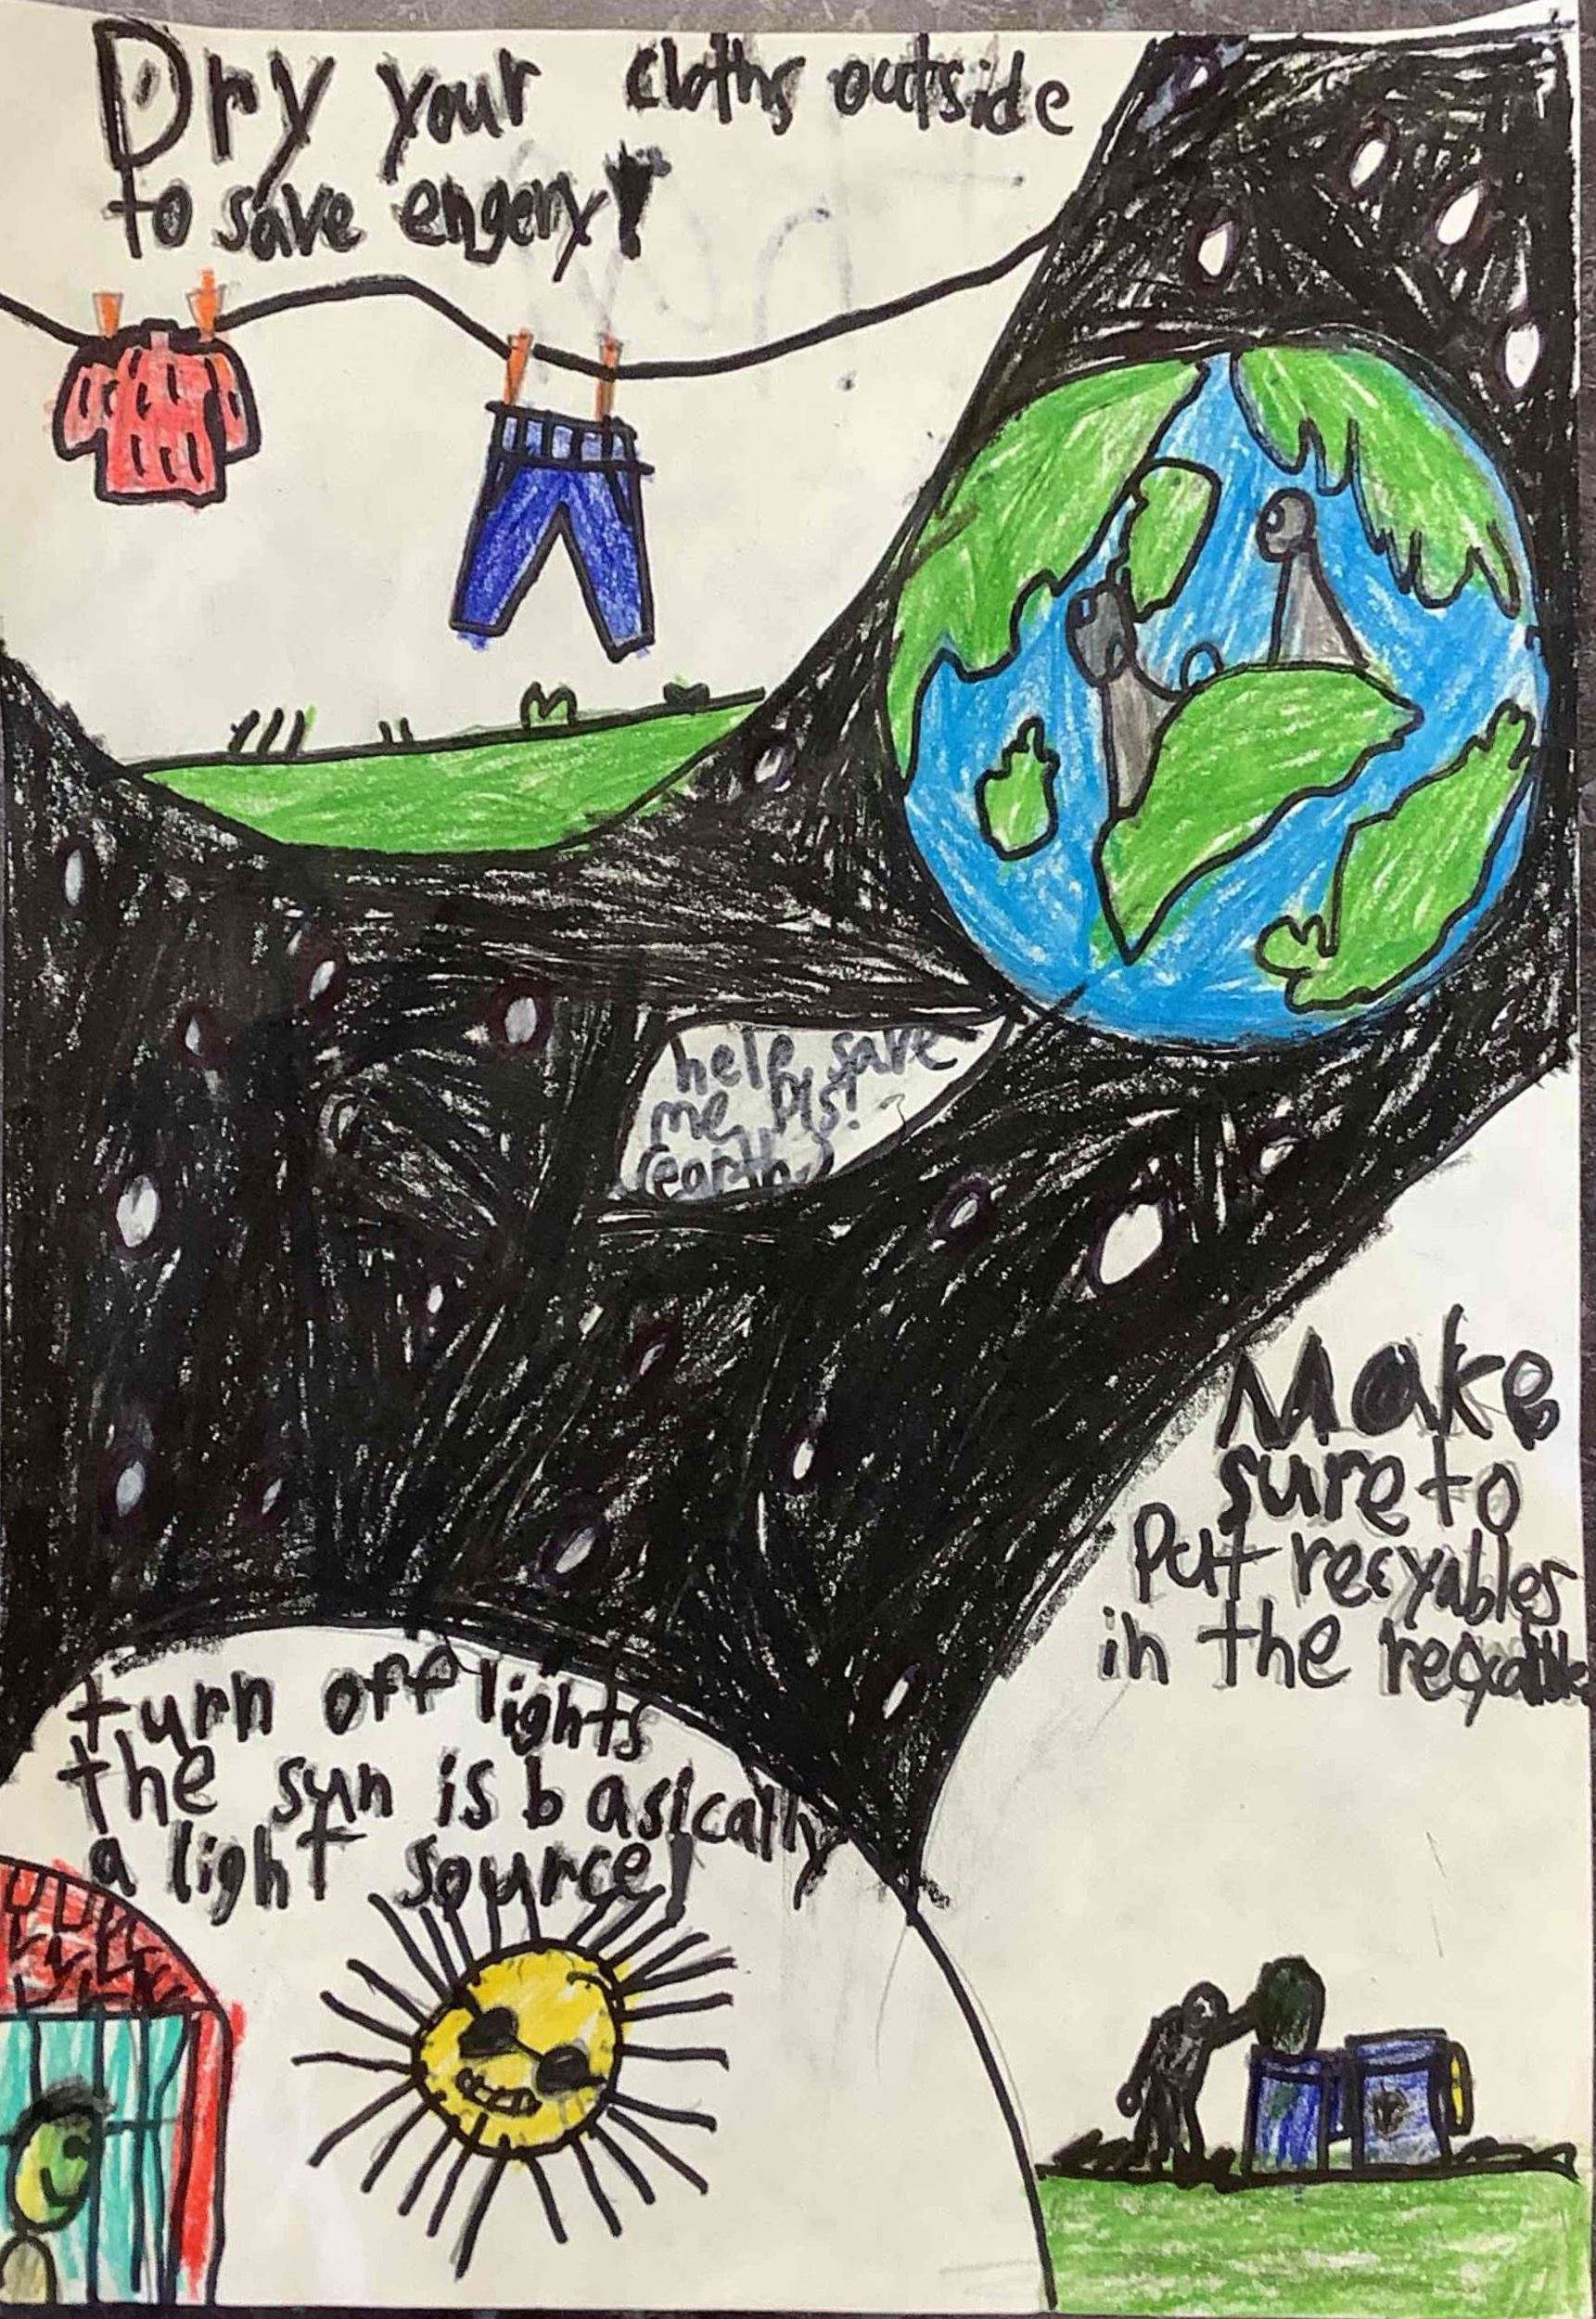 Dry your cloths outside
to save engery!
help save
me pls!
earth
Make
sure to
Put recyables
in the
turn off lights
the sun is basically
a light source!